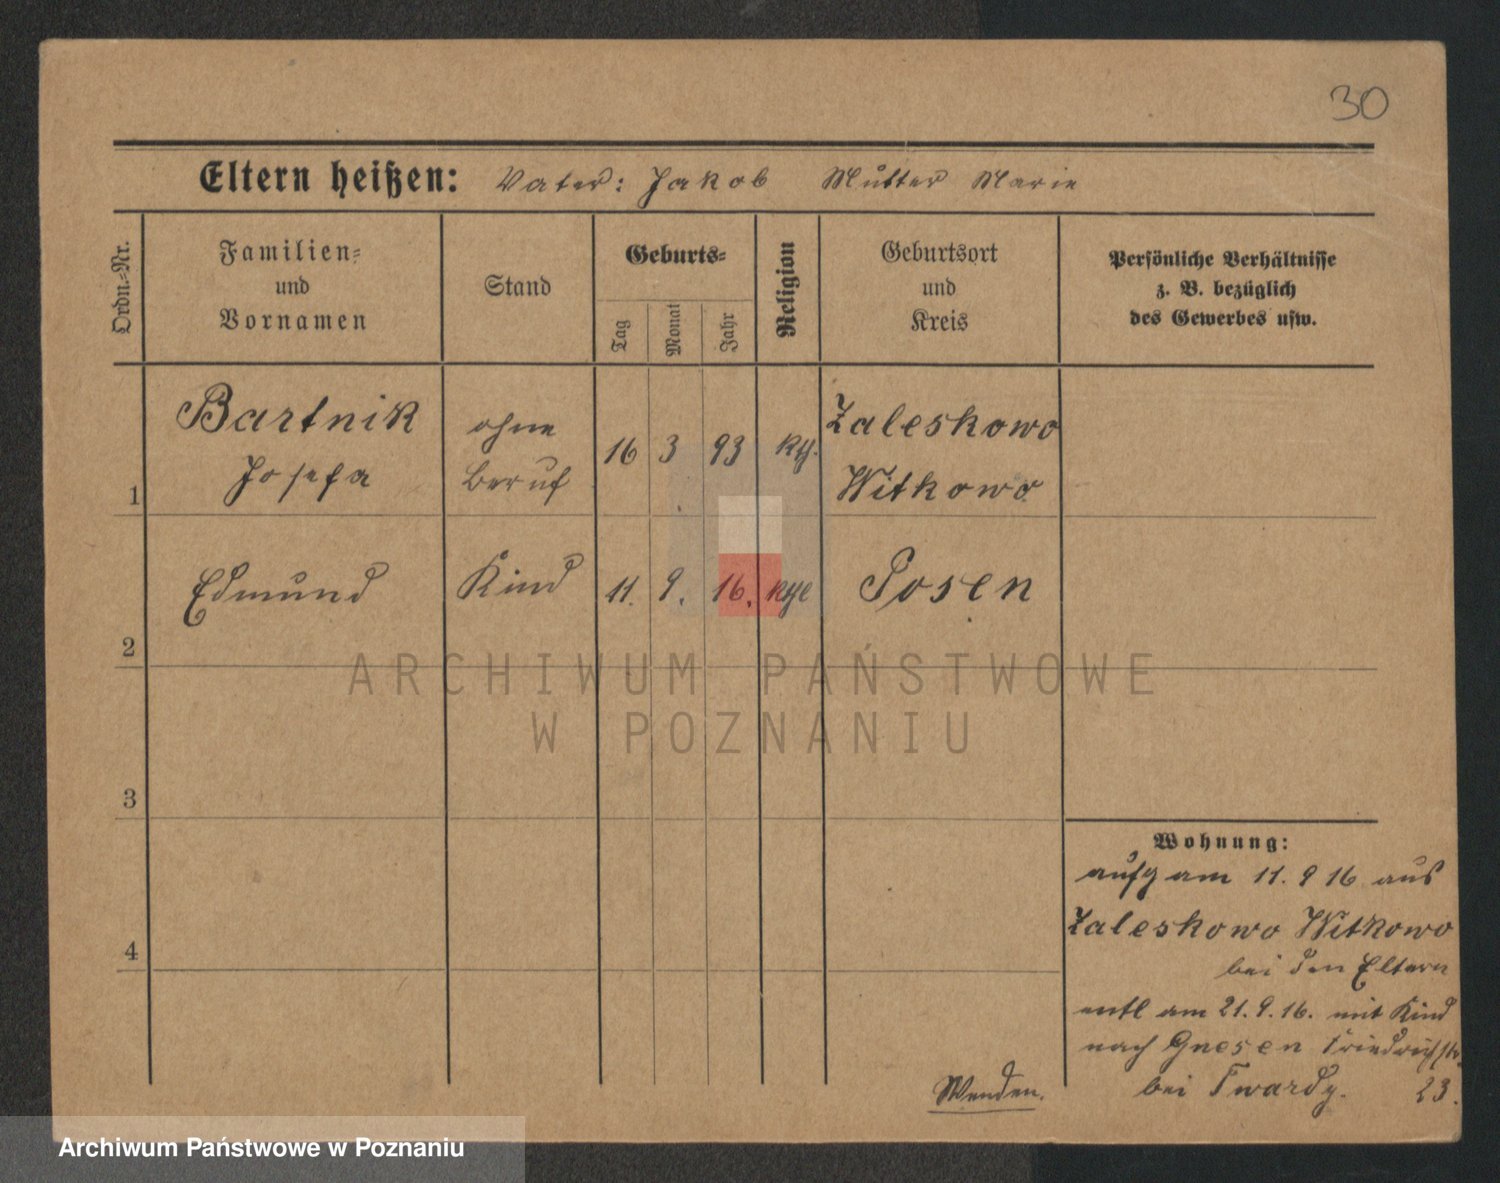 30
Eltern heißen: Vater: Jakob Mutter Marie
Ordn.-Nr.
Familien-
und
Vornamen
Stand
Geburts-
Tag
Monat
Jahr
Religion
Geburtsort
und
Kreis
Persönliche Verhältnisse
z. B. bezüglich
des Gewerbes usw.
1
Bartnik
Josefa
ohne
Beruf
16 3 93 kth.
Zaleskowo
Witkowo
2
Edmund
Kind
11. 9. 16. kth
Posen
3
4
Wohnung:
aufg am 11. 9 16 aus
Zaleskowo Witkowo
bei den Eltern
entl am 21. 9. 16. mit Kind
nach Gnesen Friedrichstr
bei Twardy. 23.
Wenden.
ARCHIWUM PAŃSTWOWE
W POZNANIU
Archiwum Państwowe w Poznaniu